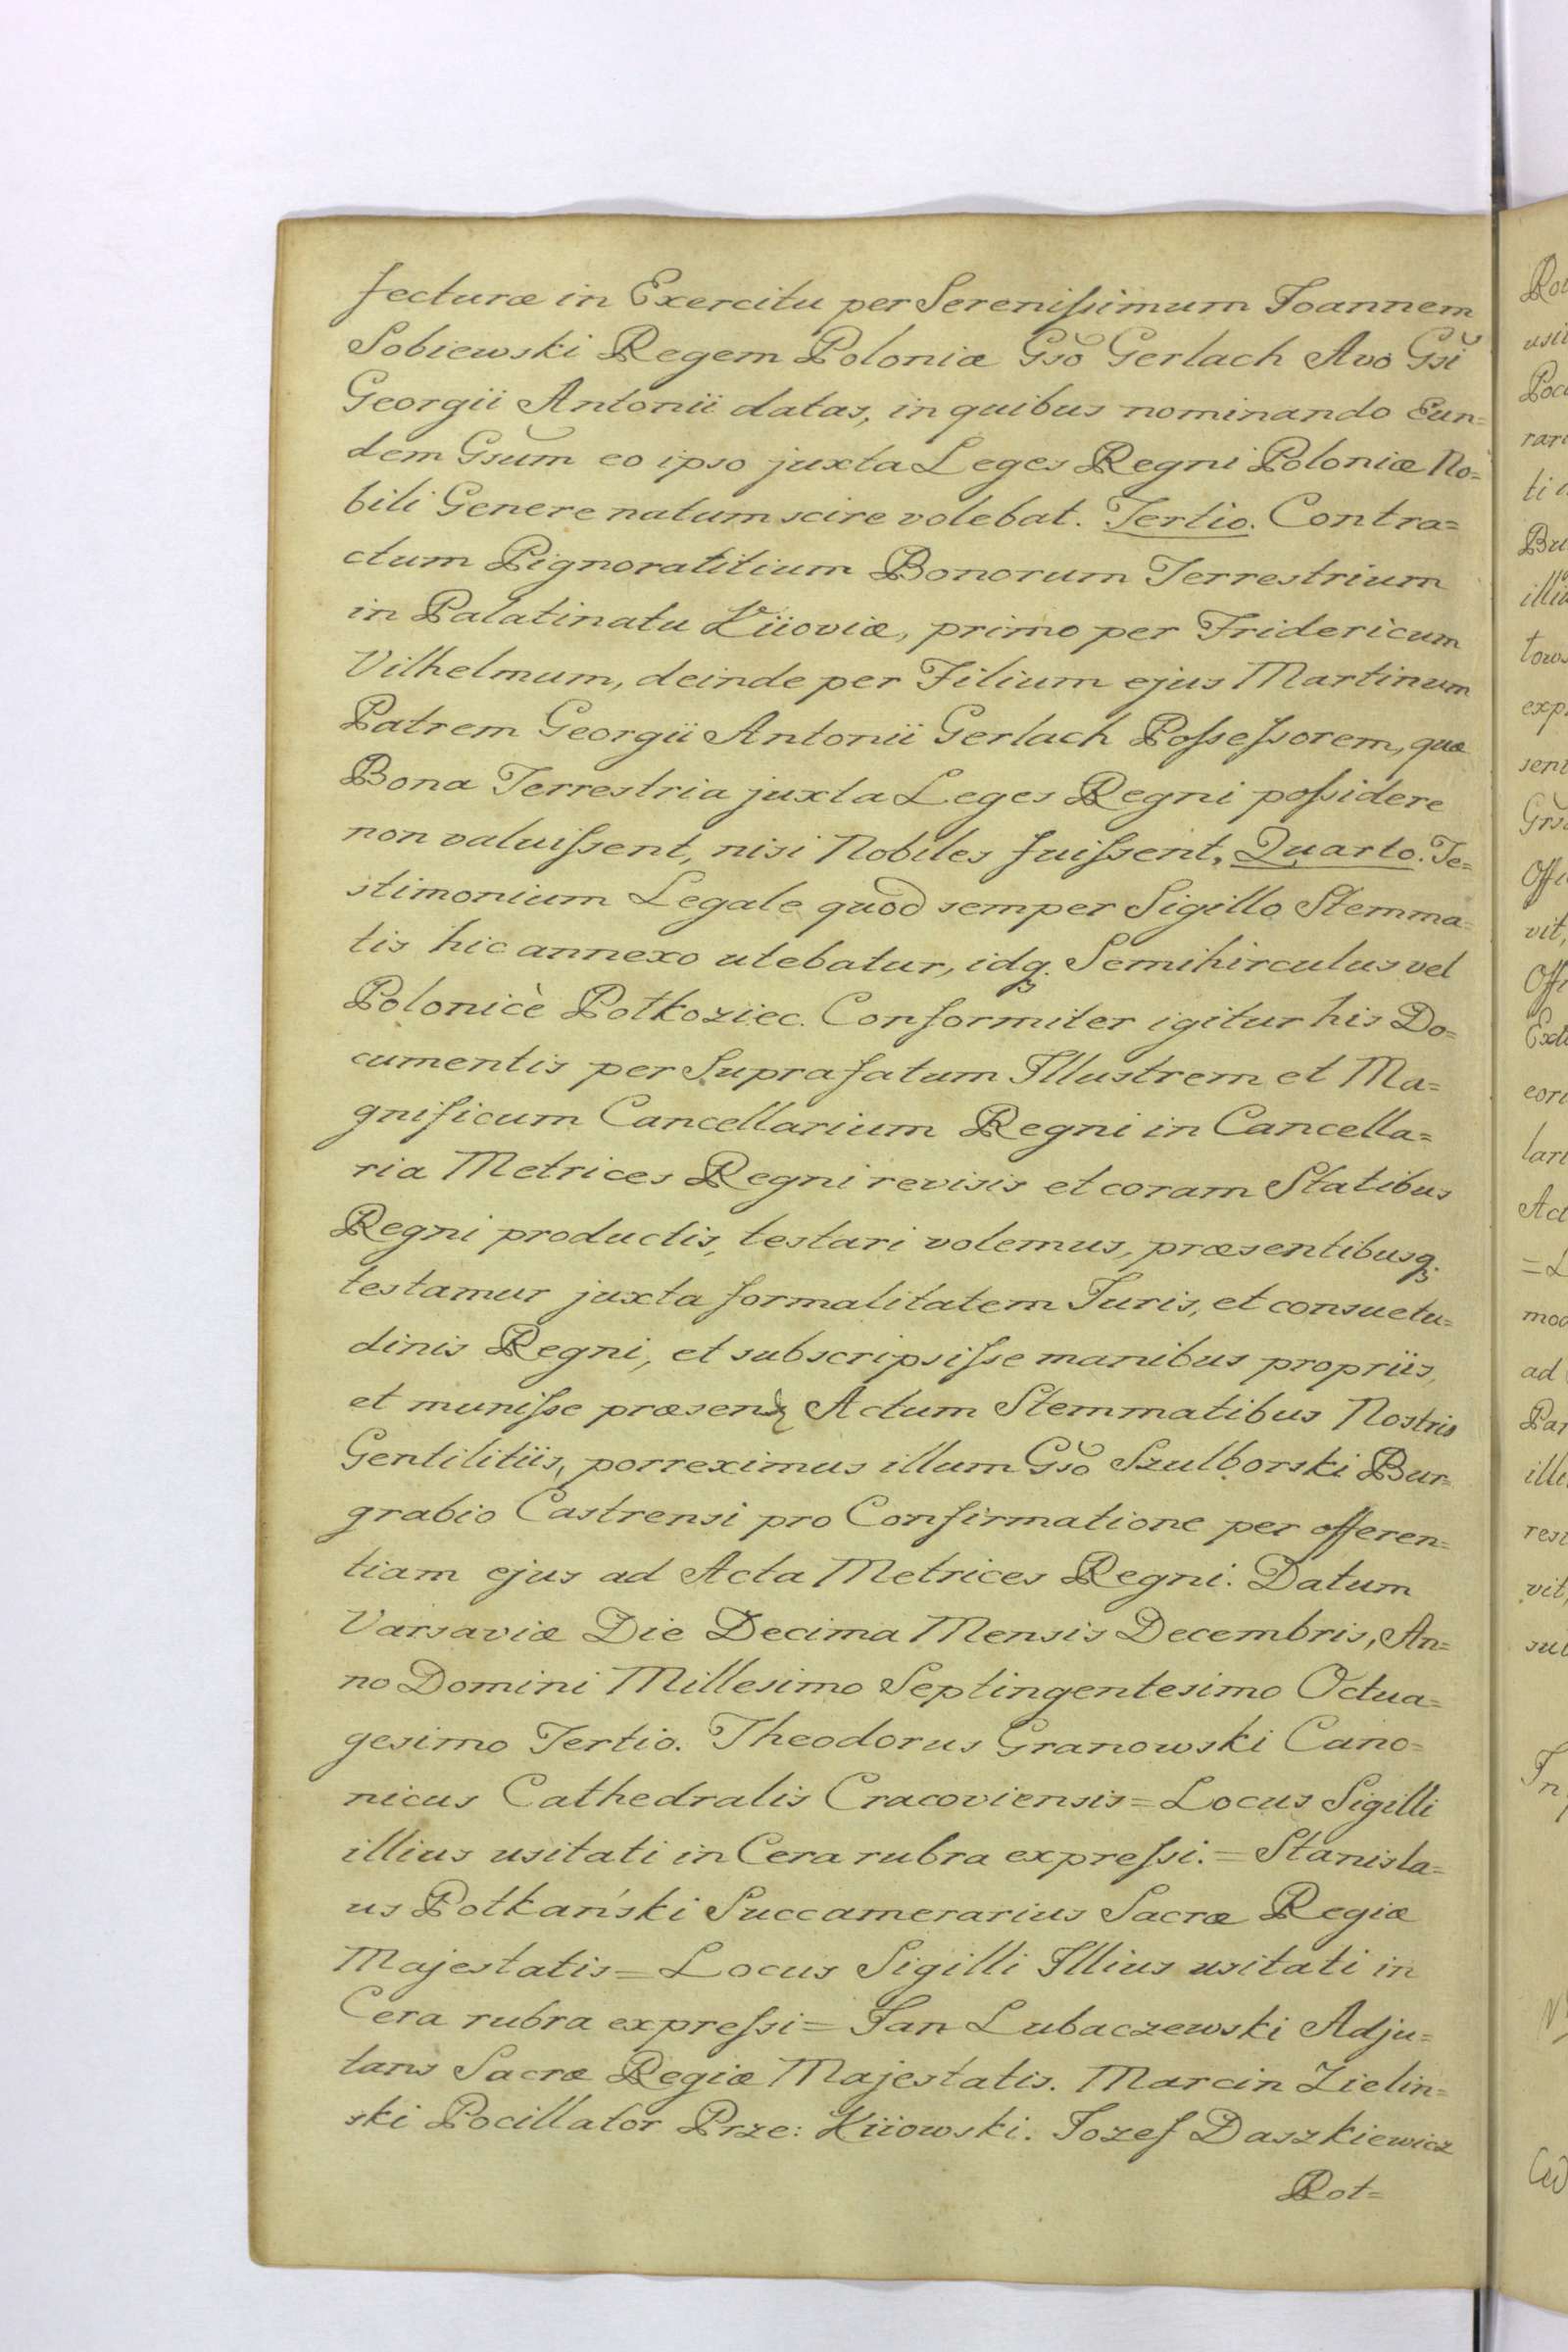 fecturæ in Exercitu per Serenissimum Joannem
Sobiewski Regem Poloniæ Gsõ Gerlach Avo Gsĩ
Georgii Antonii datas, in quibus nominando Eun=
dem Gsũm eo ipso juxta Leges Regni Poloniæ No=
bili Genere natum scire volebat. Tertio. Contra=
ctum Pignoratitium Bonorum Terrestrium
in Palatinatu Kiioviæ, primo per Fridericum
Vilhelmum, deinde per Filium ejus Martinum
Patrem Georgii Antonii Gerlach Possessorem, quæ
Bona Terrestria juxta Leges Regni possidere
non valuissent, nisi Nobiles fuissent, Quarto. Te=
stimonium Legale quod semper Sigillo Stemma=
tis hic annexo utebatur, idq; Semihirculus vel
Polonicè Połkoziec. Conformiter igitur his Do=
cumentis per Suprafatum Illustrem et Ma=
gnificum Cancellarium Regni in Cancella=
ria Metrices Regni revisis et coram Statibus
Regni productis, testari volemus, præsentibusq;
testamur juxta formalitatem Juris, et consuetu=
dinis Regni, et subscripsisse manibus propriis,
et munisse præsens Actum Stemmatibus Nostris
Gentilitiis, porreximus illum Gsõ Szulborski Bur=
grabio Castrensi pro Confirmatione per offeren=
tiam ejus ad Acta Metrices Regni. Datum
Varsaviæ Die Decima Mensis Decembris, An=
no Domini Millesimo Septingentesimo Octua=
gesimo Tertio. Theodorus Granowski Cano=
nicus Cathedralis Cracoviensis = Locus Sigilli
illius usitati in Cera rubra expressi. = Stanisla=
us Potkański Succamerarius Sacræ Regiæ
Majestatis = Locus Sigilli Illius usitati in
Cera rubra expressi = Jan Lubaczewski Adju=
tans Sacræ Regiæ Majestatis. Marcin Zielin=
ski Pocillator Prze: Kiiowski. Jozef Daszkiewicz
Rot=